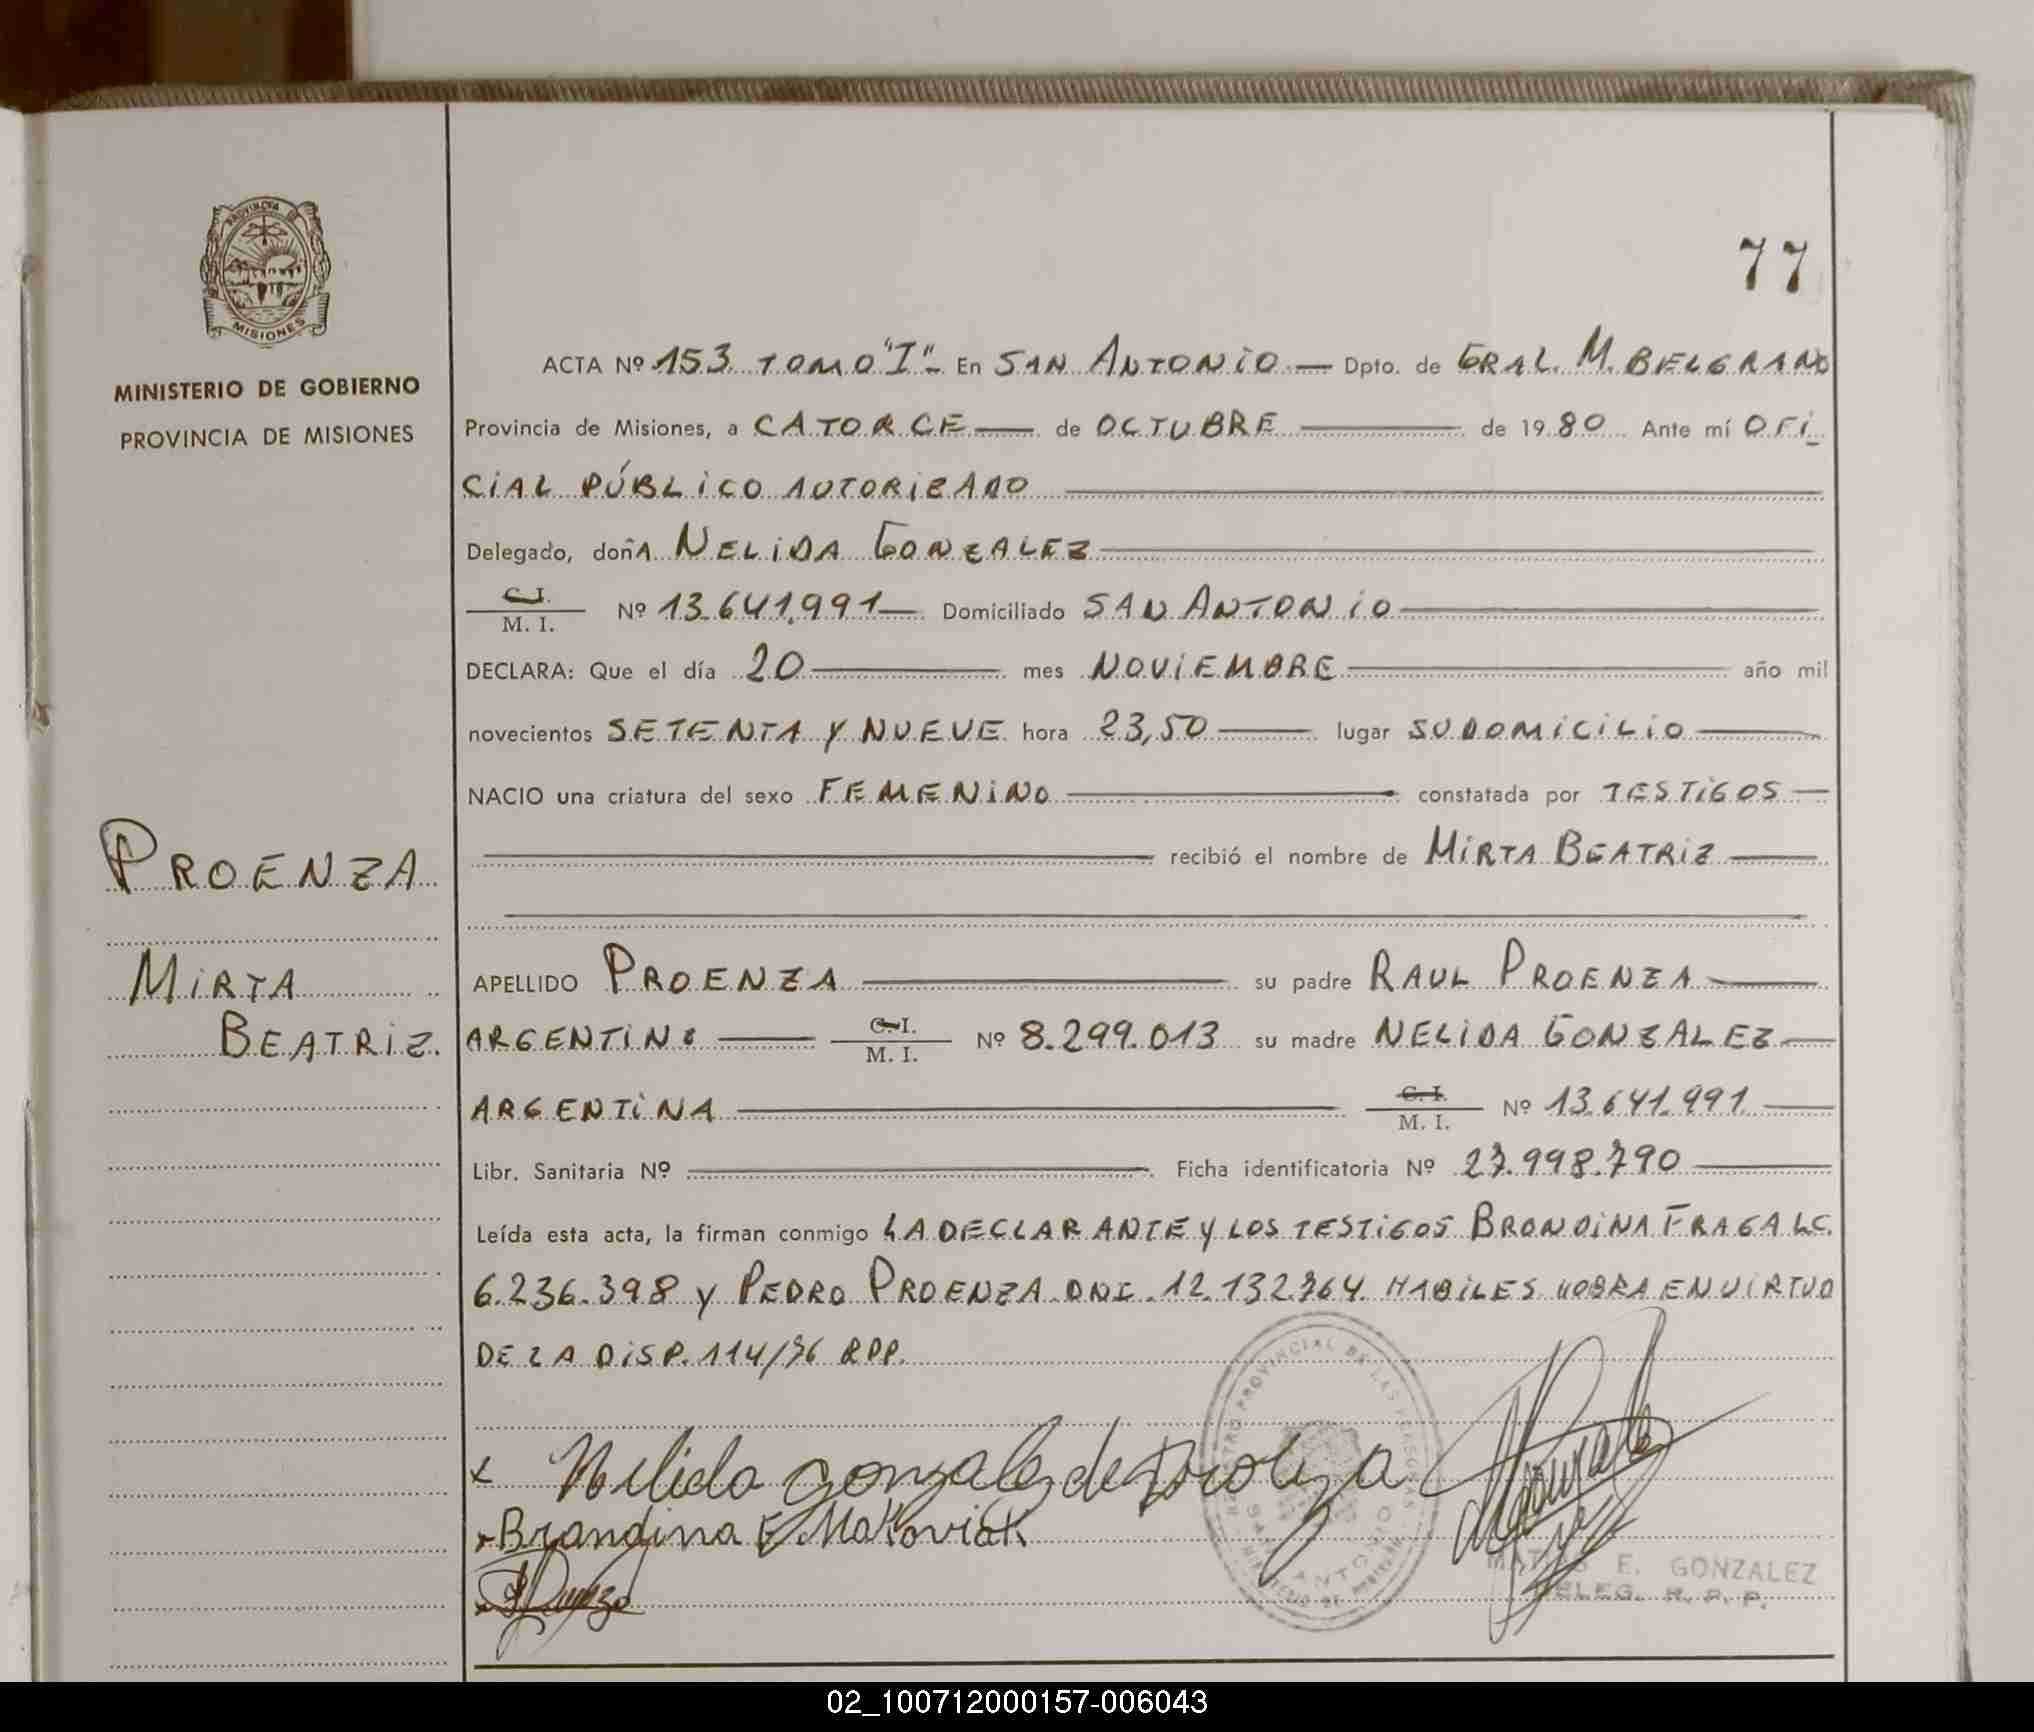 77
PROVINCIA
MISIONES
MINISTERIO DE GOBIERNO
PROVINCIA DE MISIONES
ACTA Nº 153 TOMO "I" En SAN ANTONIO Dpto. de GRAL. M. BELGRANO
Provincia de Misiones, a CATORCE de OCTUBRE de 1980 Ante mí OFI
CIAL PÚBLICO AUTORIZADO
Delegado, doñA NELIDA GONZALEZ
C. I.
M. I. Nº 13.641.991 Domiciliado SAN ANTONIO
DECLARA: Que el día 20 mes NOVIEMBRE año mil
novecientos SETENTA Y NUEVE hora 23,50 lugar SU DOMICILIO
NACIO una criatura del sexo FEMENINO constatada por TESTIGOS
recibió el nombre de MIRTA BEATRIZ
PROENZA
MIRTA
BEATRIZ.
APELLIDO PROENZA su padre RAUL PROENZA
ARGENTINO C. I. M. I. Nº 8.299.013 su madre NELIDA GONZALEZ
ARGENTINA C. I. M. I. Nº 13.641.991
Libr. Sanitaria Nº Ficha identificatoria Nº 27.998.790
Leída esta acta, la firman conmigo LA DECLARANTE Y LOS TESTIGOS BRONDINA FRAGA LC.
6.236.398 y PEDRO PROENZA DNI. 12.132.764. HABILES OBRA EN VIRTUD
DE LA DISP. 114/76 RPP.
x Nelida gonzalez de Proenza
x Brandina F Makoviak
REGISTRO PROVINCIAL DE LAS PERSONAS
SAN ANTONIO
MATIAS E. GONZALEZ
DELEG. R. P. P.
02_100712000157-006043